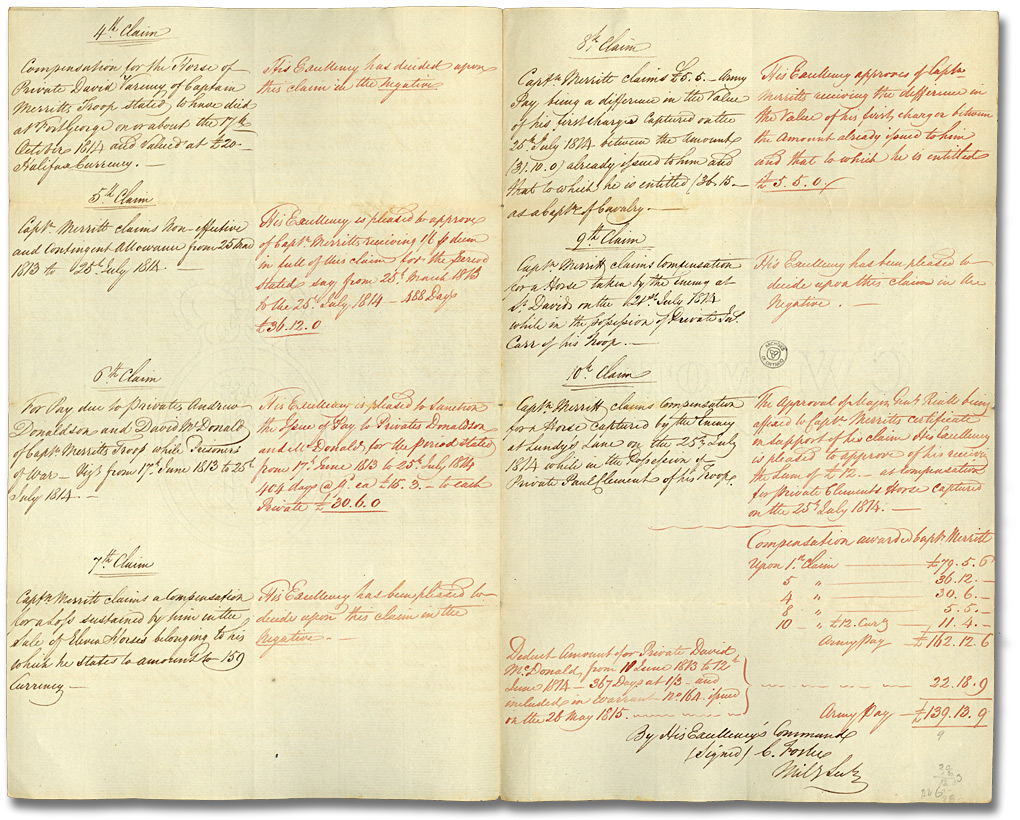 4th Claim
Compensation for the Horse of
Private David Vanevy of Captain
Merritts Troop stated to have died
at Fort George on or about the 17th
October 1814 and valued at £20.
Halifax Currency. —
His Excellency has decided upon
this claim in the Negative
5th Claim
Captn Merritt claims Non-effective
and Contingent Allowance from 25 Mar
1813 to 25th July 1814. —
His Excellency is pleased to approve
of Captn Merritts receiving 1/6 p diem
in full of this claim for the period
stated say, from 25th March 1813
to the 25th July 1814 — 488 Days
£36.12.0
6th Claim
For Pay due to Privates Andrew
Donaldson and David McDonald
of Captn Merritts Troop while Prisoners
of War — Vizt from 17th June 1813 to 25th
July 1814. —
His Excellency is pleased to Sanction
the Issue of Pay to Privates Donaldson
and McDonald, for the period stated
from 17th June 1813 to 25th July 1814
404 days @ ea £15.3. — to each
Private £30.6.0
7th Claim
Captn Merritt claims a Compensation
for a Loss sustained by him in the
Sale of Eleven Horses belonging to his
which he states to amount to 159
Currency —
His Excellency has been pleased to
decide upon this claim in the
Negative. —
8th Claim
Captn Merritt claims £5.5 — Army
Pay being a difference in the Value
of his first charger Captured on the
25th July 1814 between the Amount
(31.10.0) already issued to him and
that to which he is entitled (36.15 —
as a Captn of Cavalry. —
His Excellency approves of Captn
Merritts receiving the difference in
the Value of his first charger between
the Amount already issued to him
and that to which he is entitled
£5.5.0
9th Claim
Captn Merritt claims Compensation
for a Horse taken by the enemy at
St David on the 21st July 1814
while in the possession of Private
Carr of his Troop. —
His Excellency has been pleased to
decide upon this claim in the
Negative. —
10th Claim
Captn Merritt claims Compensation
for a Horse captured by the Enemy
at Lundy's Lane on the 25th July
1814 while in the Possession of
Private Paul Clement of his Troop.
The Approval of Major Genl Riall being
affixed to Captn Merritts certificate
in support of his claim His Excellency
is pleased to approve of his receiving
the Sum of £12. — as Compensation
for Private Clements Horse captured
on the 25th July 1814. —
Compensation awarded Captn Merritt
Upon 1st Claim — £79.5.6
5 " — 36.12. —
4 " — 30.6. —
8 " — 5.5. —
10 — " £12. Curcy — 11.4. —
Army Pay — £162.12.6
Deduct Amount for Private David
McDonald, from 11 June 1813 to 12th
June 1814 — 367 Days at 1/3 — and
included in Warrant No 164. issued
on the 28 May 1815.
22.18.9
Army Pay — £139.13.9
By His Excellency's Command
(Signed) C. Foster
Mily Secy
ARCHIVES
OF ONTARIO